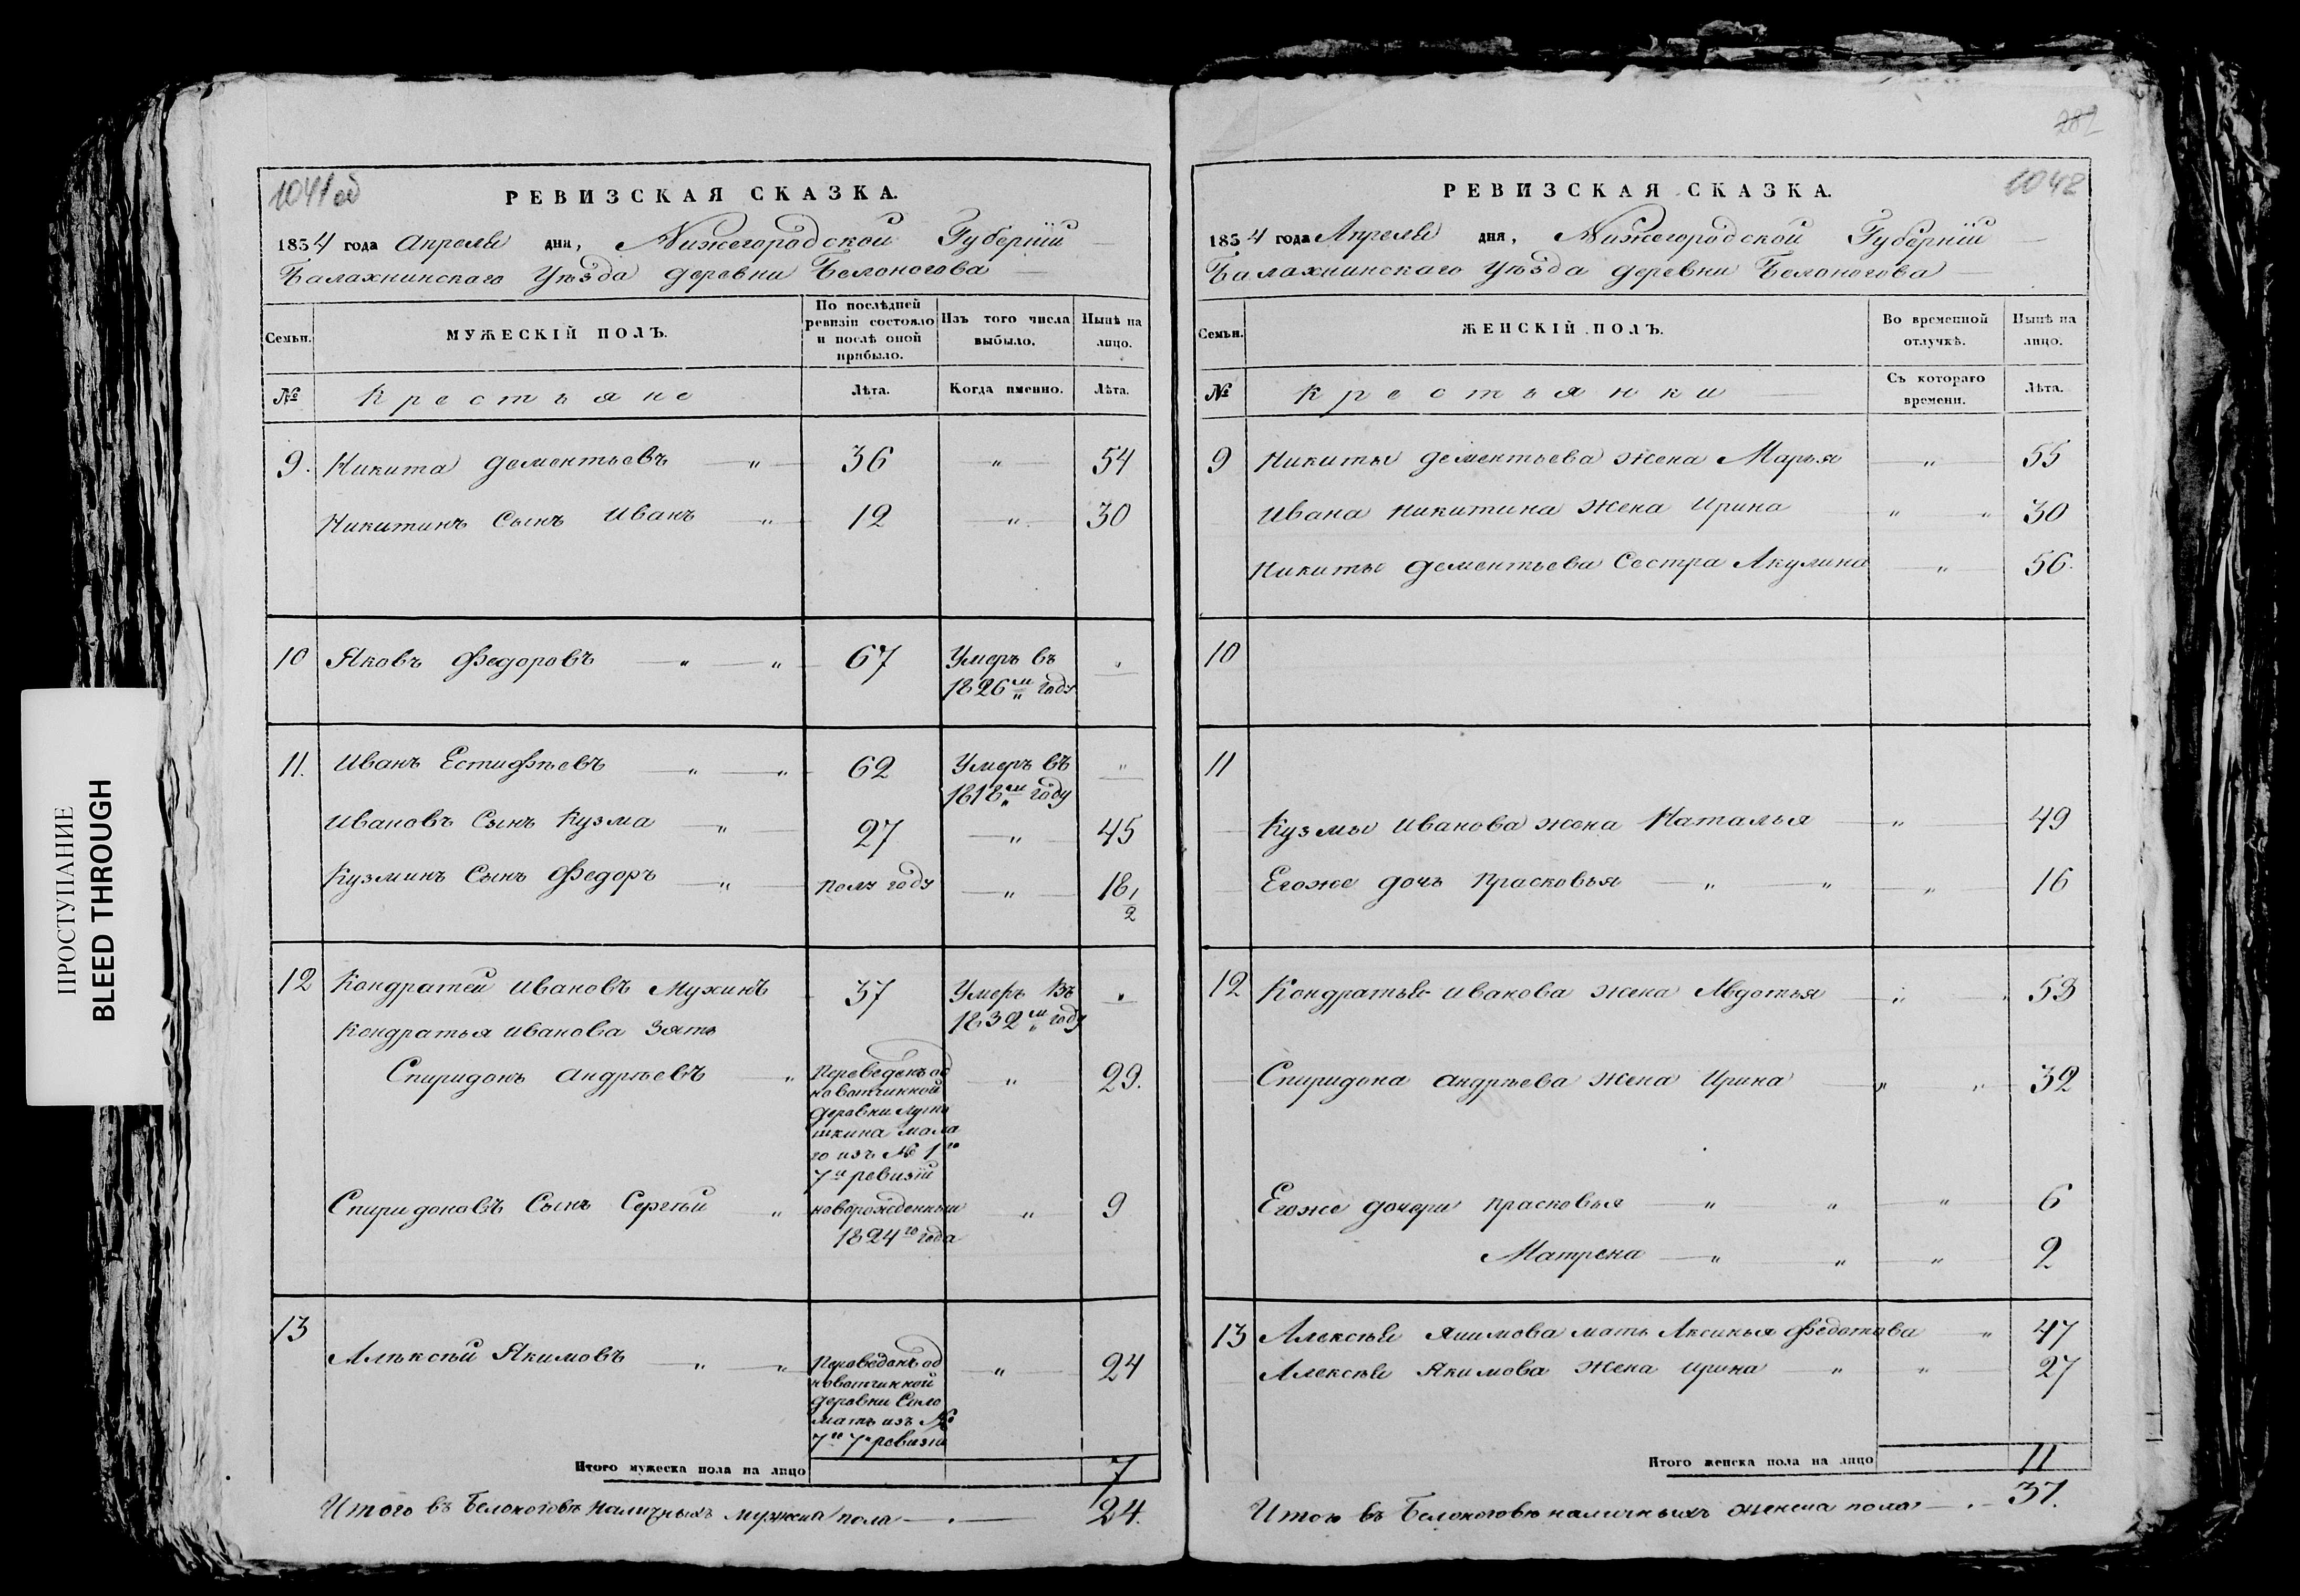 ПРОСТУПАНИЕ
BLEED THROUGH
1041 об
РЕВИЗСКАЯ СКАЗКА.
1834 года Апреля дня, Нижегородской Губерніи
Балахнинскаго Уѣзда деревни Белоногова
Семьи.
МУЖЕСКІЙ ПОЛЪ.
По послѣдней ревизіи состояло и послѣ оной прибыло.
Изъ того числа выбыло.
Нынѣ на лицо.
№ Крестьяне Лѣта. Когда именно. Лѣта.
9. Никита дементьевъ — „ — 36 „ 54
Никитинъ Сынъ Иванъ „ 12 „ 30
10 Яковъ Федоровъ — „ — „ 67 Умеръ въ
1826м году „
11. Иванъ Естифѣевъ — „ — „ 62 Умеръ въ „
1818м году
Ивановъ Сынъ Кузма — „ 27 — „ — 45
Кузминъ Сынъ Федоръ — „ полу году — „ — 18 1/2
12 Кондратей Ивановъ Мухинъ 37 Умеръ Въ „
1832м году
Кондратья Иванова Зять
Спиридонъ Андрѣевъ „ Переведенъ од „ 29.
новотчинной
деревни Луто
шкина мала
го изъ № 1го
7й ревизіи
Спиридоновъ Сынъ Сергѣй „ новорожденный „ 9
1824го года
13
Алѣксѣй Якимовъ — „ — „ Переведенъ од „ 24
новотчинной
деревни Соло
мать изъ №
7го 7й ревизіи
Итого мужеска пола на лицо 7
Итого въ Белоноговѣ наличныхъ мужеска пола — . — 24.
282
1042
РЕВИЗСКАЯ СКАЗКА.
1834 года Апреля дня, Нижегородской Губерніи
Балахнинскаго Уѣзда деревни Белоногова
Семьи.
ЖЕНСКІЙ ПОЛЪ.
Во временной отлучкѣ.
Нынѣ на лицо.
№ Крестьянки Съ котораго времени. Лѣта.
9 Никиты дементьева жена Марья „ 55
Ивана никитина жена Ирина „ „ 30
Никиты дементьева Сестра Акулина „ 56.
10
11
Кузмы Иванова жена Наталья — „ 49
Егоже дочь Прасковья — „ — „ — „ 16
12 Кондратья Иванова жена Авдотья — „ 53
Спиридона Андрѣева жена Ирина „ „ 32
Егоже дочери Прасковья — „ „ „ 6
Матрена — „ „ „ 2
13 Алексѣя Якимова мать Аксинья Федотова „ 47
Алексѣя Якимова жена Ирина „ „ 27
Итого женска пола на лицо 11
Итого въ Белоноговѣ наличныхъ женска пола — . — 37.